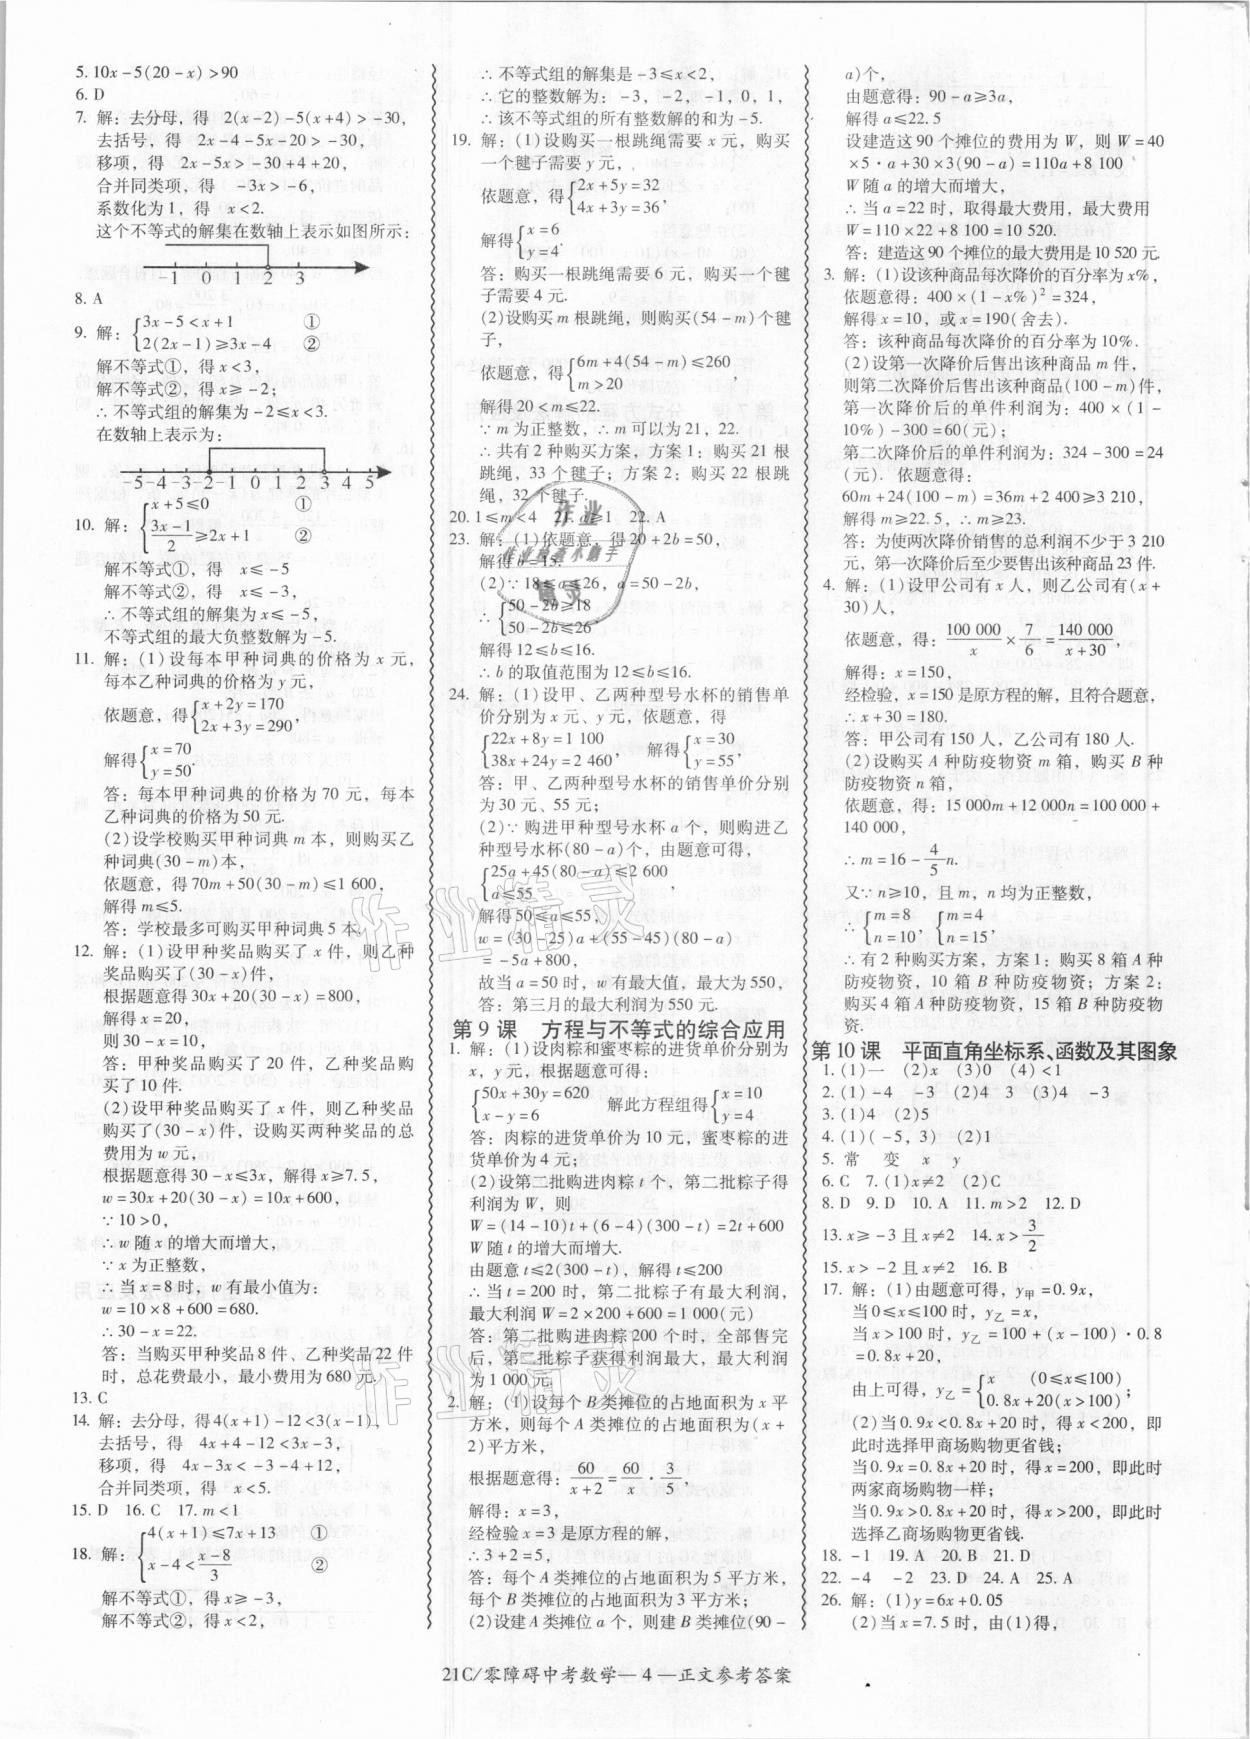 5. 10x-5(20-x)>90
6. D
7. 解：去分母，得 2(x-2)-5(x+4)>-30，
去括号，得 2x-4-5x-20>-30，
移项，得 2x-5x>-30+4+20，
合并同类项，得 -3x>-6，
系数化为1，得 x<2.
这个不等式的解集在数轴上表示如图所示：
-1 0 1 2 3
8. A
9. 解：{3x-5<x+1 ①
2(2x-1)≥3x-4 ②
解不等式①，得 x<3，
解不等式②，得 x≥-2；
∴不等式组的解集为-2≤x<3.
在数轴上表示为：
-5-4-3-2-1 0 1 2 3 4 5
10. 解：{x+5≤0 ①
(3x-1)/2≥2x+1 ②
解不等式①，得 x≤-5
解不等式②，得 x≤-3，
∴不等式组的解集为 x≤-5，
不等式组的最大负整数解为-5.
11. 解：(1)设每本甲种词典的价格为 x 元，
每本乙种词典的价格为 y 元，
依题意，得{x+2y=170
2x+3y=290，
解得{x=70
y=50.
答：每本甲种词典的价格为 70 元，每本
乙种词典的价格为 50 元.
(2)设学校购买甲种词典 m 本，则购买乙
种词典(30-m)本，
依题意，得 70m+50(30-m)≤1 600，
解得 m≤5.
答：学校最多可购买甲种词典 5 本.
12. 解：(1)设甲种奖品购买了 x 件，则乙种
奖品购买了(30-x)件，
根据题意得 30x+20(30-x)=800，
解得 x=20，
则 30-x=10，
答：甲种奖品购买了 20 件，乙种奖品购
买了 10 件.
(2)设甲种奖品购买了 x 件，则乙种奖品
购买了(30-x)件，设购买两种奖品的总
费用为 w 元，
根据题意得 30-x≤3x，解得 x≥7.5，
w=30x+20(30-x)=10x+600，
∵10>0，
∴w 随 x 的增大而增大，
∵x 为正整数，
∴当 x=8 时，w 有最小值为：
w=10×8+600=680.
∴30-x=22.
答：当购买甲种奖品 8 件、乙种奖品 22 件
时，总花费最小，最小费用为 680 元.
13. C
14. 解：去分母，得 4(x+1)-12<3(x-1)，
去括号，得 4x+4-12<3x-3，
移项，得 4x-3x<-3-4+12，
合并同类项，得 x<5.
15. D 16. C 17. m<1
18. 解：{4(x+1)≤7x+13 ①
x-4<(x-8)/3 ②
解不等式①，得 x≥-3，
解不等式②，得 x<2，
∴不等式组的解集是-3≤x<2，
∴它的整数解为：-3，-2，-1，0，1，
∴该不等式组的所有整数解的和为-5.
19. 解：(1)设购买一根跳绳需要 x 元，购买
一个毽子需要 y 元，
依题意，得{2x+5y=32
4x+3y=36，
解得{x=6
y=4.
答：购买一根跳绳需要 6 元，购买一个毽
子需要 4 元.
(2)设购买 m 根跳绳，则购买(54-m)个毽
子，
依题意，得{6m+4(54-m)≤260
m>20，
解得 20<m≤22.
∵m 为正整数，∴m 可以为 21，22.
∴共有 2 种购买方案，方案 1：购买 21 根
跳绳，33 个毽子；方案 2：购买 22 根跳
绳，32 个毽子.
20. 1≤m<4 21. a≥1 22. A
23. 解：(1)依题意，得 20+2b=50，
解得 b=15.
(2)∵18≤a≤26，a=50-2b，
∴{50-2b≥18
50-2b≤26，
解得 12≤b≤16.
∴b 的取值范围为 12≤b≤16.
24. 解：(1)设甲、乙两种型号水杯的销售单
价分别为 x 元、y 元，依题意，得
{22x+8y=1 100
38x+24y=2 460， 解得{x=30
y=55，
答：甲、乙两种型号水杯的销售单价分别
为 30 元、55 元；
(2)∵购进甲种型号水杯 a 个，则购进乙
种型号水杯(80-a)个，由题意可得，
{25a+45(80-a)≤2 600
a≤55，
解得 50≤a≤55，
w=(30-25)a+(55-45)(80-a)
=-5a+800，
故当 a=50 时，w 有最大值，最大为 550，
答：第三月的最大利润为 550 元.
第 9 课 方程与不等式的综合应用
1. 解：(1)设肉粽和蜜枣粽的进货单价分别为
x，y 元，根据题意可得：
{50x+30y=620
x-y=6 解此方程组得{x=10
y=4
答：肉粽的进货单价为 10 元，蜜枣粽的进
货单价为 4 元；
(2)设第二批购进肉粽 t 个，第二批粽子得
利润为 W，则
W=(14-10)t+(6-4)(300-t)=2t+600
W 随 t 的增大而增大.
由题意 t≤2(300-t)，解得 t≤200
∴当 t=200 时，第二批粽子有最大利润，
最大利润 W=2×200+600=1 000(元)
答：第二批购进肉粽 200 个时，全部售完
后，第二批粽子获得利润最大，最大利润
为 1 000 元.
2. 解：(1)设每个 B 类摊位的占地面积为 x 平
方米，则每个 A 类摊位的占地面积为(x+
2)平方米，
根据题意得：60/(x+2)=60/x·3/5
解得：x=3，
经检验 x=3 是原方程的解，
∴3+2=5，
答：每个 A 类摊位的占地面积为 5 平方米，
每个 B 类摊位的占地面积为 3 平方米；
(2)设建 A 类摊位 a 个，则建 B 类摊位(90-
a)个，
由题意得：90-a≥3a，
解得 a≤22.5
设建造这 90 个摊位的费用为 W，则 W=40
×5·a+30×3(90-a)=110a+8 100
W 随 a 的增大而增大，
∴当 a=22 时，取得最大费用，最大费用
W=110×22+8 100=10 520.
答：建造这 90 个摊位的最大费用是 10 520 元.
3. 解：(1)设该种商品每次降价的百分率为 x%，
依题意得：400×(1-x%)²=324，
解得 x=10，或 x=190(舍去).
答：该种商品每次降价的百分率为 10%.
(2)设第一次降价后售出该种商品 m 件，
则第二次降价后售出该种商品(100-m)件，
第一次降价后的单件利润为：400×(1-
10%)-300=60(元)；
第二次降价后的单件利润为：324-300=24
(元). 依题意得：
60m+24(100-m)=36m+2 400≥3 210，
解得 m≥22.5，∴m≥23.
答：为使两次降价销售的总利润不少于 3 210
元，第一次降价后至少要售出该种商品 23 件.
4. 解：(1)设甲公司有 x 人，则乙公司有(x+
30)人，
依题意，得：100 000/x×7/6=140 000/(x+30)，
解得：x=150，
经检验，x=150 是原方程的解，且符合题意，
∴x+30=180.
答：甲公司有 150 人，乙公司有 180 人.
(2)设购买 A 种防疫物资 m 箱，购买 B 种
防疫物资 n 箱，
依题意，得：15 000m+12 000n=100 000+
140 000，
∴m=16-4/5n.
又∵n≥10，且 m，n 均为正整数，
∴{m=8
n=10，{m=4
n=15，
∴有 2 种购买方案，方案 1：购买 8 箱 A 种
防疫物资，10 箱 B 种防疫物资；方案 2：
购买 4 箱 A 种防疫物资，15 箱 B 种防疫物
资.
第 10 课 平面直角坐标系、函数及其图象
1. (1)一 (2)x (3)0 (4)<1
2. (1)-4 -3 (2)4 3 (3)4 -3
3. (1)4 (2)5
4. (1)(-5，3) (2)1
5. 常 变 x y
6. C 7. (1)x≠2 (2)C
8. D 9. D 10. A 11. m>2 12. D
13. x≥-3 且 x≠2 14. x>3/2
15. x>-2 且 x≠2 16. B
17. 解：(1)由题意可得，y甲=0.9x，
当 0≤x≤100 时，y乙=x，
当 x>100 时，y乙=100+(x-100)·0.8
=0.8x+20，
由上可得，y乙={x (0≤x≤100)
0.8x+20(x>100)；
(2)当 0.9x<0.8x+20 时，得 x<200，即
此时选择甲商场购物更省钱；
当 0.9x=0.8x+20 时，得 x=200，即此时
两家商场购物一样；
当 0.9x>0.8x+20 时，得 x>200，即此时
选择乙商场购物更省钱.
18. -1 19. A 20. B 21. D
22. -4 -2 23. D 24. A 25. A
26. 解：(1)y=6x+0.05
(2)当 x=7.5 时，由(1)得，
21C/零障碍中考数学— 4 —正文参考答案
作业精灵
作业精灵